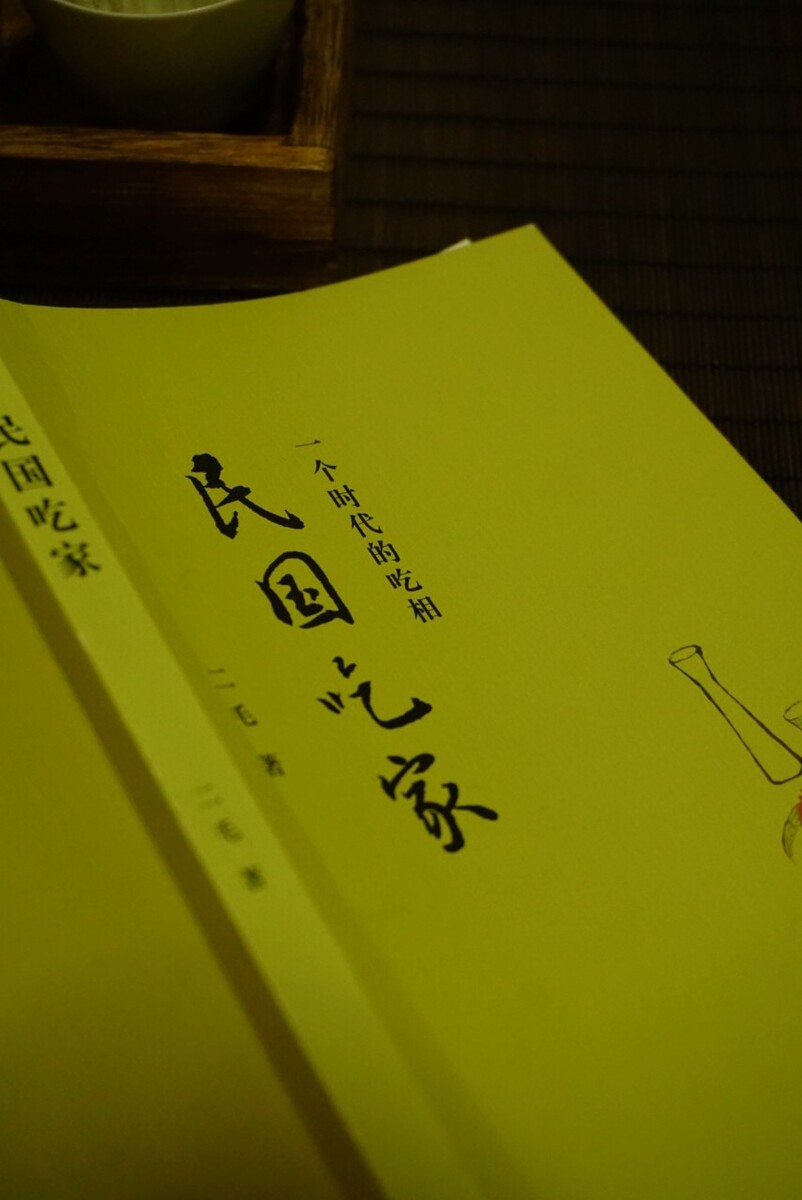 一个时代的吃相
民国吃家
二毛 著
民国吃家
二毛 著